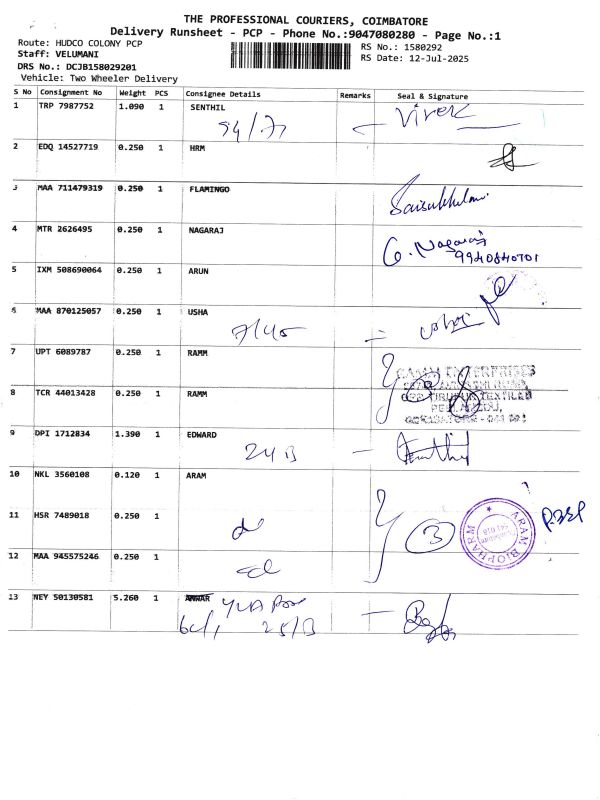 THE PROFESSIONAL COURIERS, COIMBATORE
Delivery Runsheet - PCP - Phone No.:9047080280 - Page No.:1
Route: HUDCO COLONY PCP
Staff: VELUMANI
DRS No.: DCJB158029201
Vehicle: Two Wheeler Delivery
RS No.: 1580292
RS Date: 12-Jul-2025
S No Consignment No Weight PCS Consignee Details Remarks Seal & Signature
1 TRP 7987752 1.090 1 SENTHIL Vivek
94/77
2 EDQ 14527719 0.250 1 HRM
3 MAA 711479319 0.250 1 FLAMINGO
4 MTR 2626495 0.250 1 NAGARAJ G. Nagaraj
9940840701
5 IXM 508690064 0.250 1 ARUN
6 MAA 870125057 0.250 1 USHA
7/45
7 UPT 6089787 0.250 1 RAMM
ENTERPRISES
8 TCR 44013428 0.250 1 RAMM 2
9 DPI 1712834 1.390 1 EDWARD
24 B
10 NKL 3560108 0.120 1 ARAM
11 HSR 7489018 0.250 1 3
ARAM BIOPHARM
12 MAA 945575246 0.250 1
13 NEY 50130581 5.260 1 ANWAR
25/B